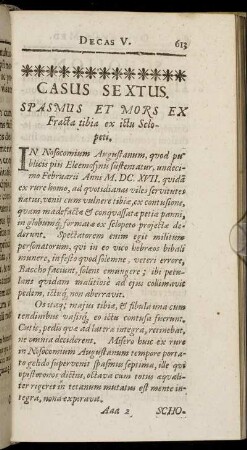 DECAS V. 613
CASUS SEXTUS.
SPASMUS ET MORS EX
Fracta tibia ex ictu Sclo-
peti.
IN Nosocomium Augustanum, quod pu-
blicis piis Eleemosynis sustentatur, undeci-
mo Februarii Anni M. DC. XVII, quidam
ex rure homo, ad quotidianas viles servitutes
natus, venit cum vulnere tibiæ, ex contusione,
quam madefacta & conquassata petia panni,
in globumq; formata ex sclopeto projecta de-
derunt. Spectatum enim egit militum
personatorum, qui in eo vico hebræos bibali
munere, in festo quod solemne, veteri errore,
Baccho faciunt, solent emungere; ibi petu-
lans quidam malitiosè ad ejus collimavit
pedem, ictuq; non aberravit.
Os itaq; majus tibiæ, & fibula una cum
tendinibus vasisq; eo ictu contusa fuerunt,
Cutis, pedis quæ ad latera integra, retinebat,
ne omnia deciderent. Misero huic ex rure
in Nosocomium Augustanum tempore porta-
to gelido supervenit spasmus septima, ille qui
opistotonos dicitur, octava cum totus æquali-
ter rigeret in tetanum mutatus est mente in-
tegra, nona expiravit.
Aaa 2 SCHO-